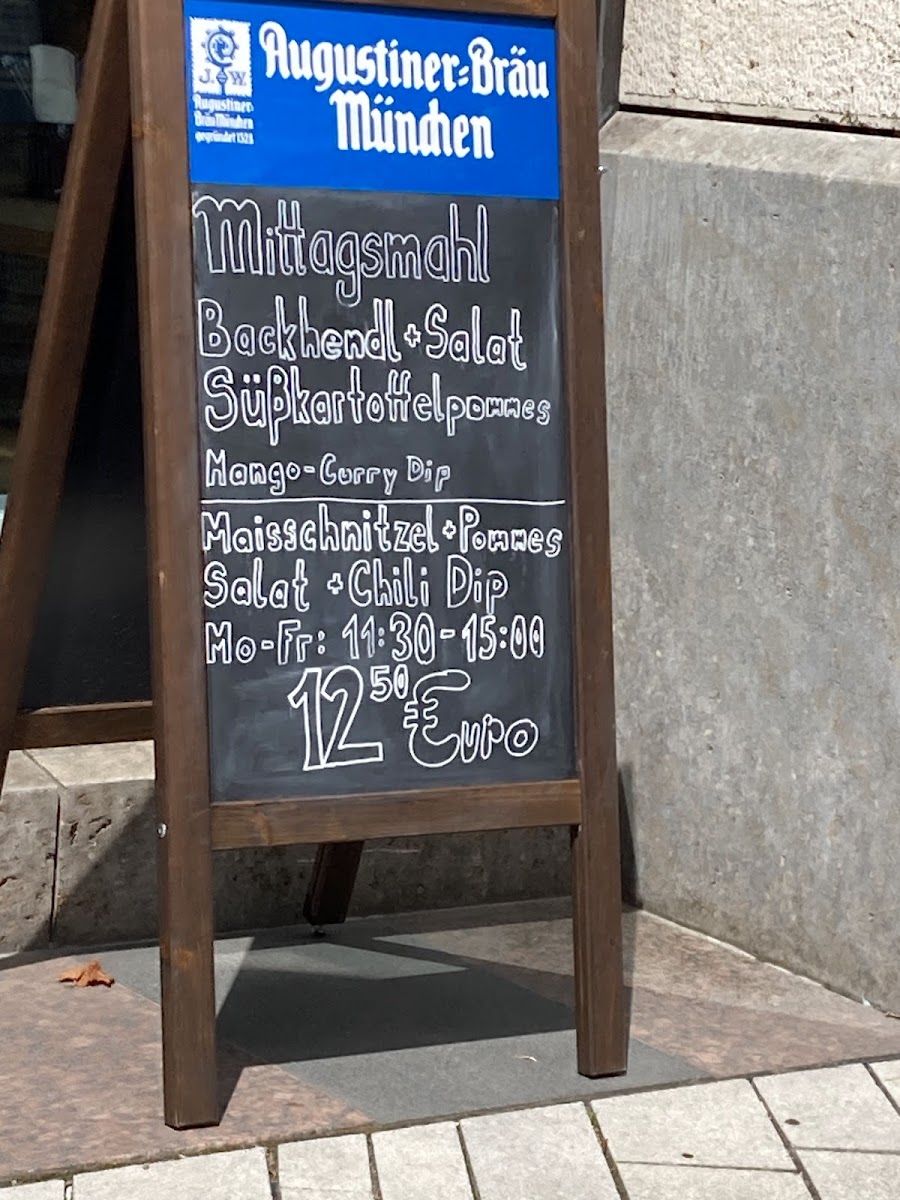 J. W.
Augustiner-
Bräu München
gegründet 1328
Augustiner-Bräu
München
Mittagsmahl
Backhendl + Salat
Süßkartoffelpommes
Mango-Curry Dip
Maisschnitzel + Pommes
Salat + Chili Dip
Mo-Fr: 11:30-15:00
12 50 €uro